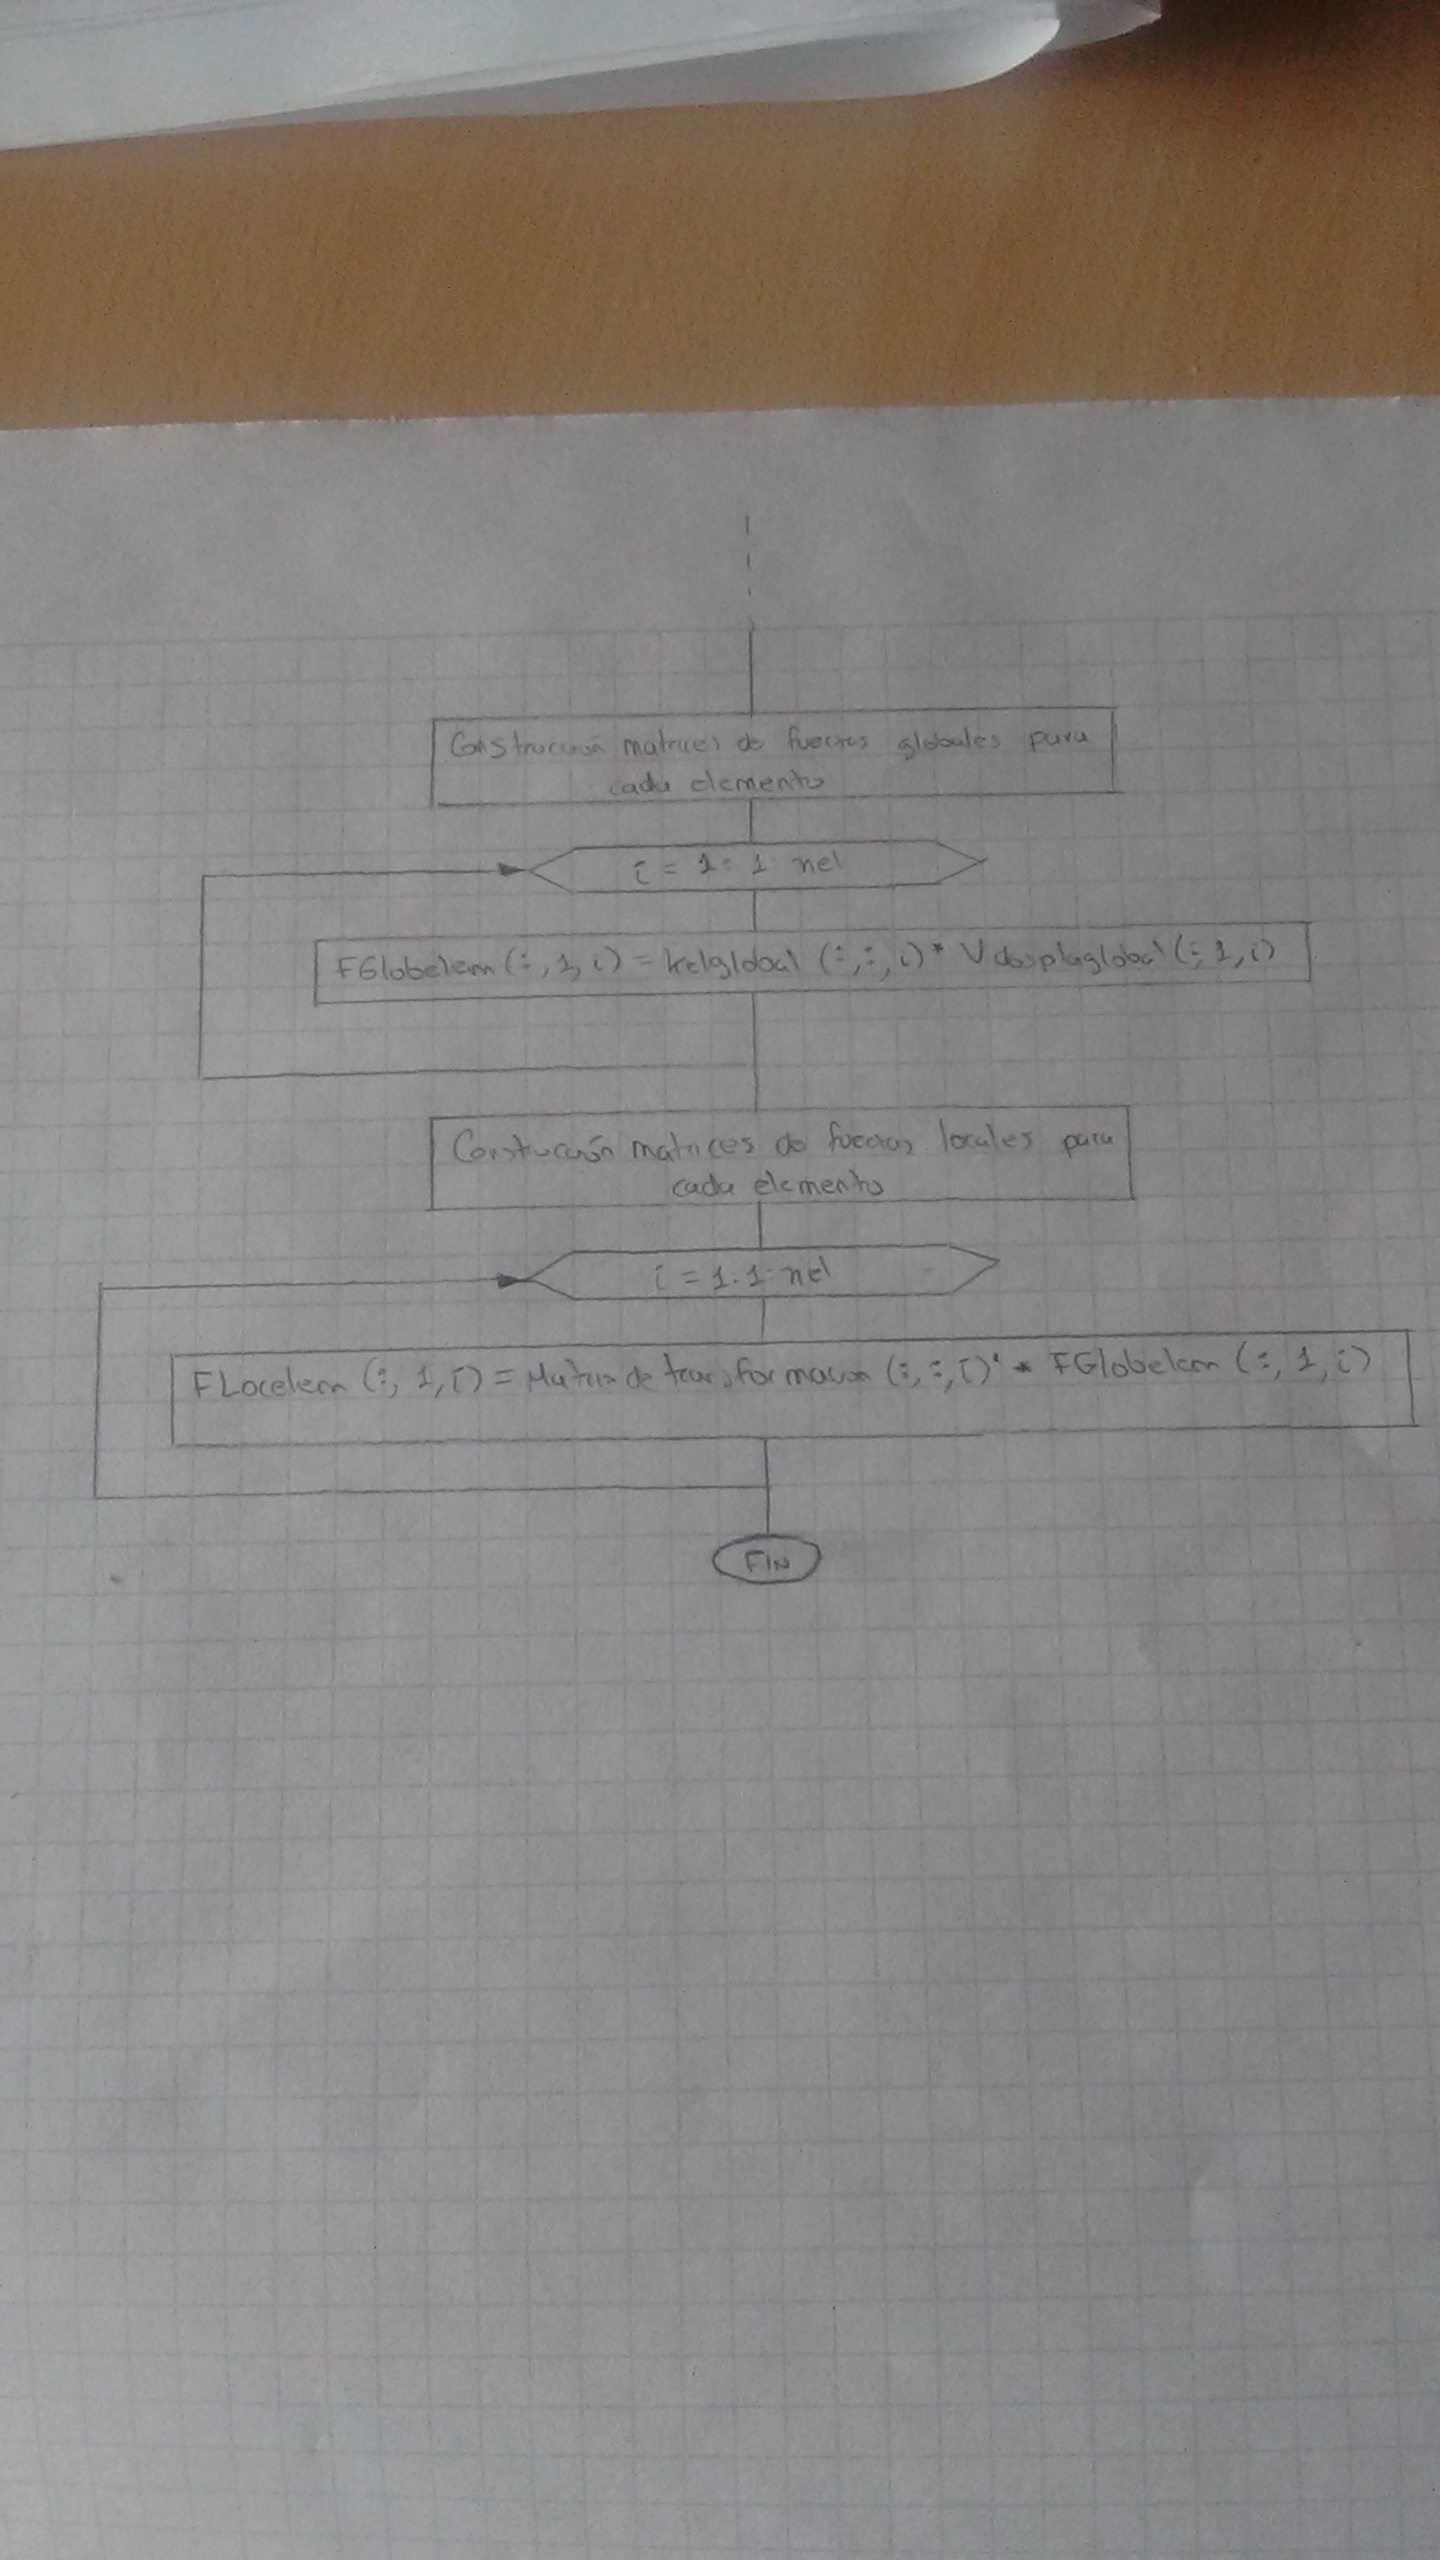 Construcción matrices de fuerzas globales para
cada elemento
i = 1:1:nel
FGlobelem (:,1,i) = kelglobal (:,:,i) * Vdesplaglobal (:,1,i)
Construcción matrices de fuerzas locales para
cada elemento
i = 1:1:nel
FLocelem (:,1,i) = Matriz de transformacion (:,:,i)' * FGlobelem (:,1,i)
FIN